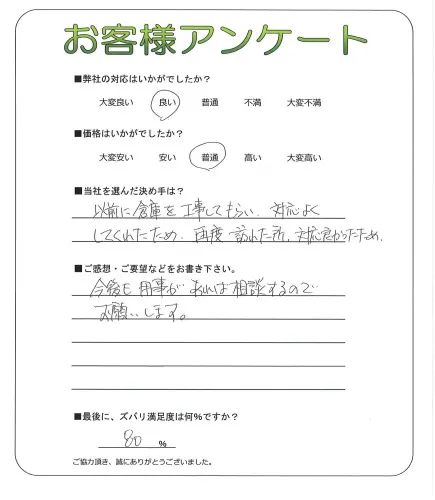 お客様アンケート
■弊社の対応はいかがでしたか?
大変良い 良い 普通 不満 大変不満
■価格はいかがでしたか?
大変安い 安い 普通 高い 大変高い
■当社を選んだ決め手は?
以前に倉庫を工事してもらい、対応よく
してくれたため、再度訪れた所、対応良かったため、
■ご感想・ご要望などをお書き下さい。
今後も用事があれば相談するので
お願いします。
■最後に、ズバリ満足度は何%ですか?
80 %
ご協力頂き、誠にありがとうございました。